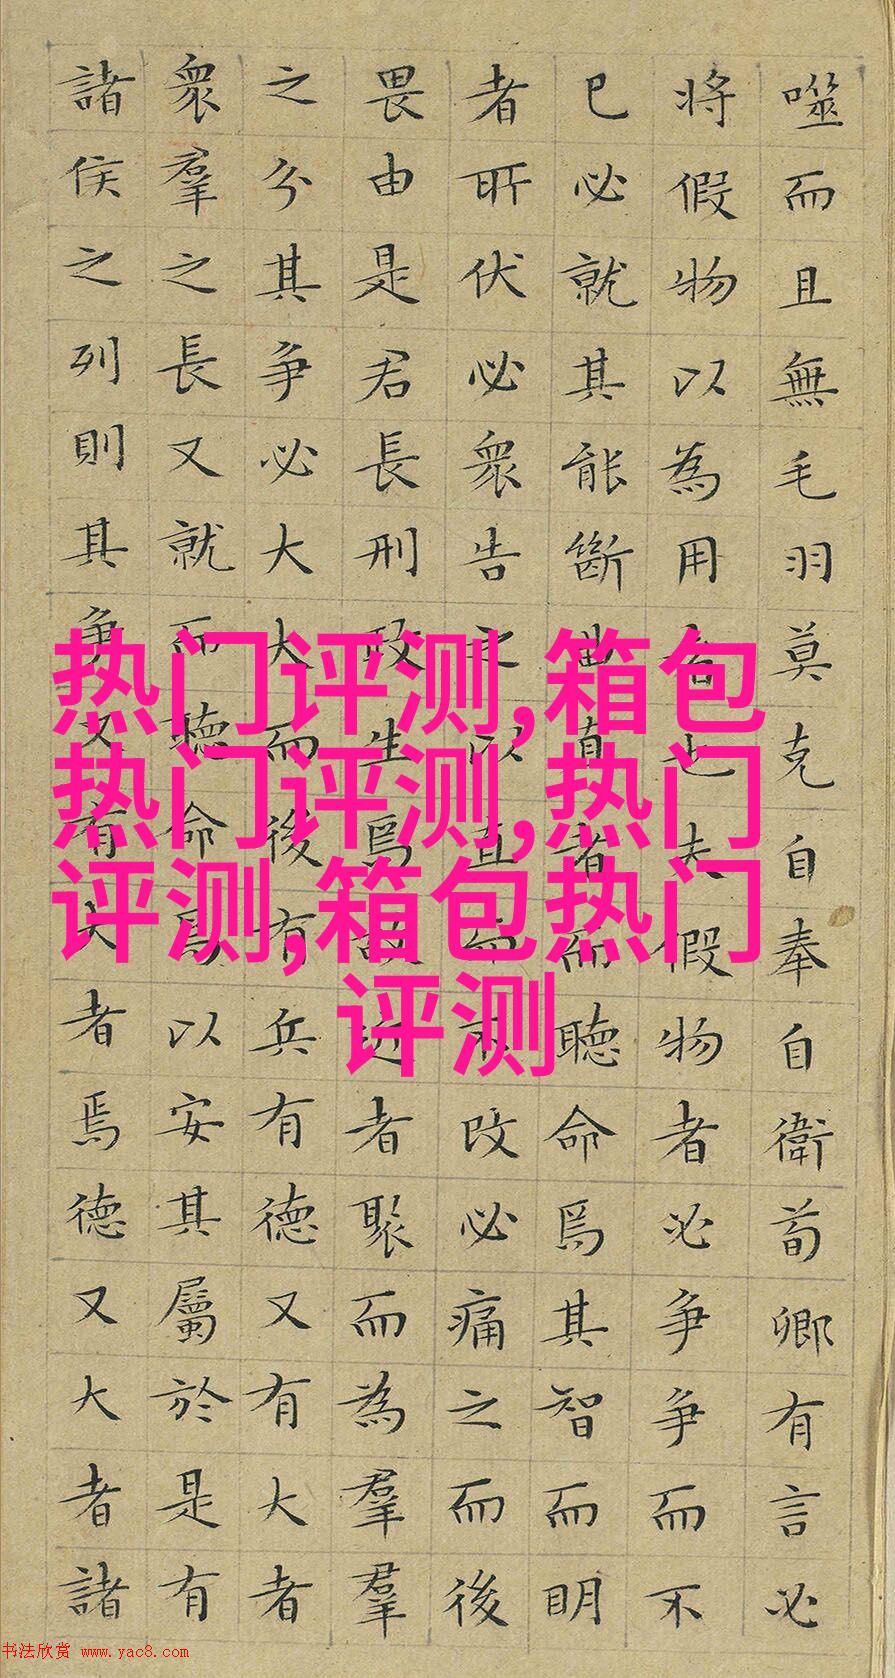 噬而且無毛羽莫克自奉自衛荀卿有言必
将假物以為用者也夫假物者必争争而不
已必就其能斷曲直者而聽命焉其智而明
者所伏必衆告之以直而不改必痛之而後
畏由是君長刑政生焉故近者聚而為羣羣
之分其争必大大而後有兵有德又有大者
衆羣之長又就而聽命焉以安其屬於是有
諸侯之列則其争又有大者焉德又大者諸
热门评测,箱包
热门评测,热门
评测,箱包热门
评测
书法欣赏 www.yac8.com